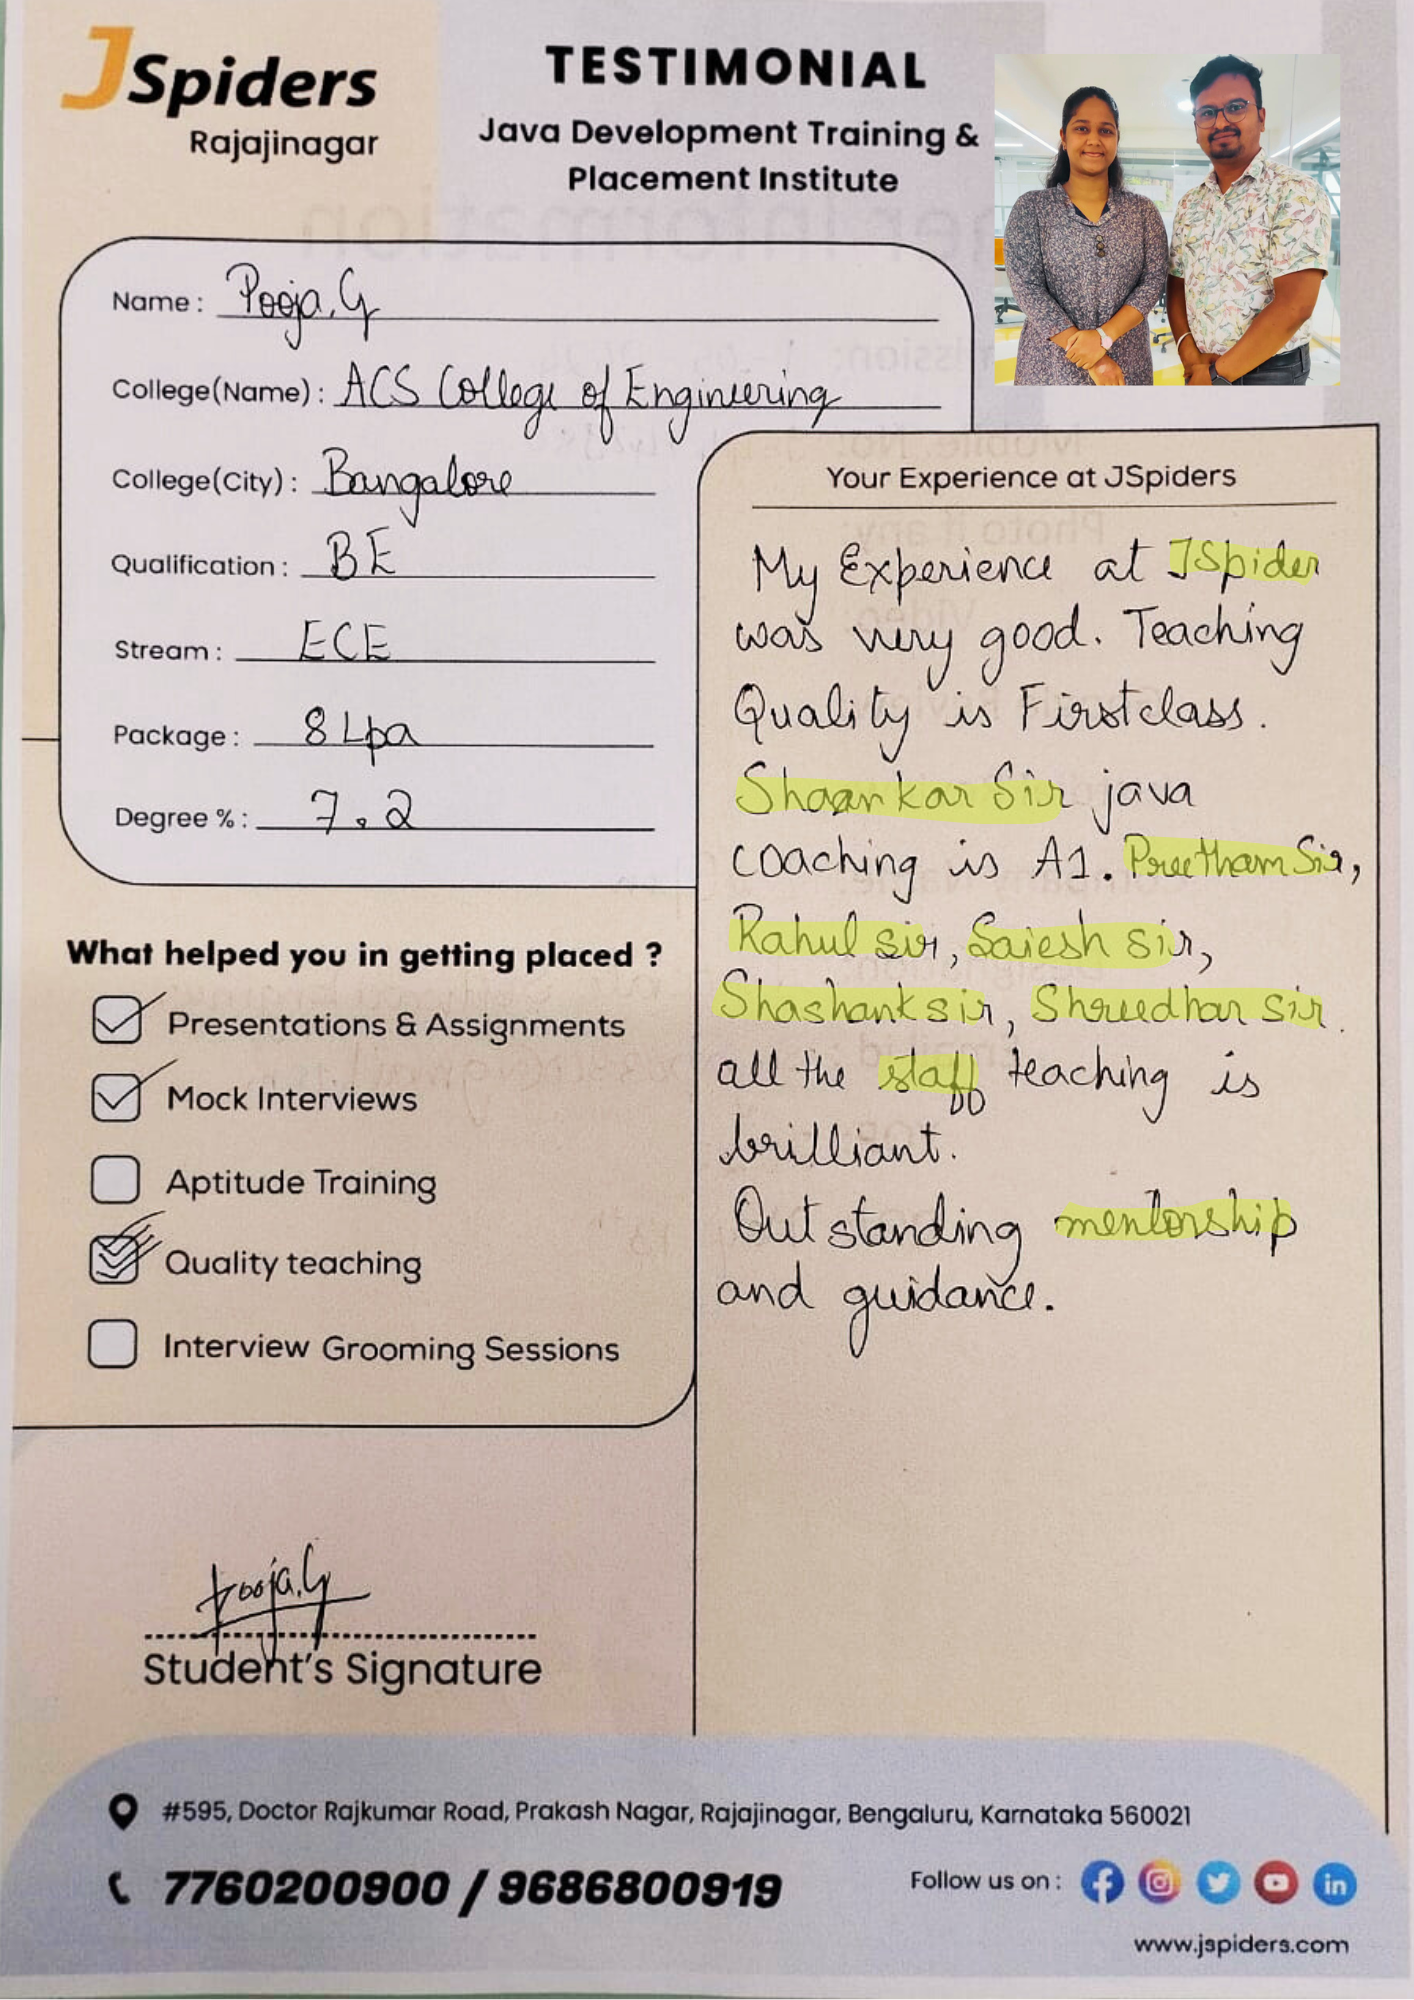 JSpiders
Rajajinagar
TESTIMONIAL
Java Development Training &
Placement Institute
Name : Pooja.G
College(Name) : ACS College of Engineering
College(City) : Bangalore
Qualification : BE
Stream : ECE
Package : 8 Lpa
Degree % : 7.2
What helped you in getting placed ?
Presentations & Assignments
Mock Interviews
Aptitude Training
Quality teaching
Interview Grooming Sessions
Your Experience at JSpiders
My Experience at JSpider
was very good. Teaching
Quality is Firstclass.
Shaankar Sir java
coaching is A1. Preetham Sir,
Rahul sir, Saiesh sir,
Shashank sir, Shreedhar sir.
all the staff teaching is
brilliant.
Outstanding mentorship
and guidance.
Pooja.G
Student's Signature
#595, Doctor Rajkumar Road, Prakash Nagar, Rajajinagar, Bengaluru, Karnataka 560021
7760200900 / 9686800919
Follow us on :
www.jspiders.com